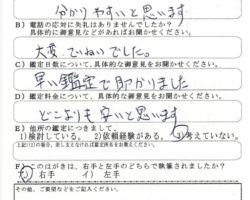 分かりやすいと思います
B）電話の応対に失礼はありませんでしたか？
具体的な御意見などがあればお聞かせください。
大変ていねいでした。
C）鑑定日数について、具体的な御意見をお聞かせください。
早い鑑定で助かりました
D）鑑定料金について、具体的な御意見をお聞かせください。
どこよりも安いと思います
E）他所の鑑定につきまして。
1)検討している。 2)依頼経験がある。 3)考えていない。
F）このはがきは、右手と左手のどちらで執筆されましたか？
ア）右手 イ）左手
その他、ご要望などをご記入ください。